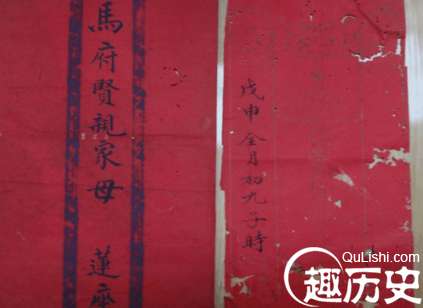 馬府賢親家母 蓮座
戊申年全月初九子時
QuLishi.com
趣历史